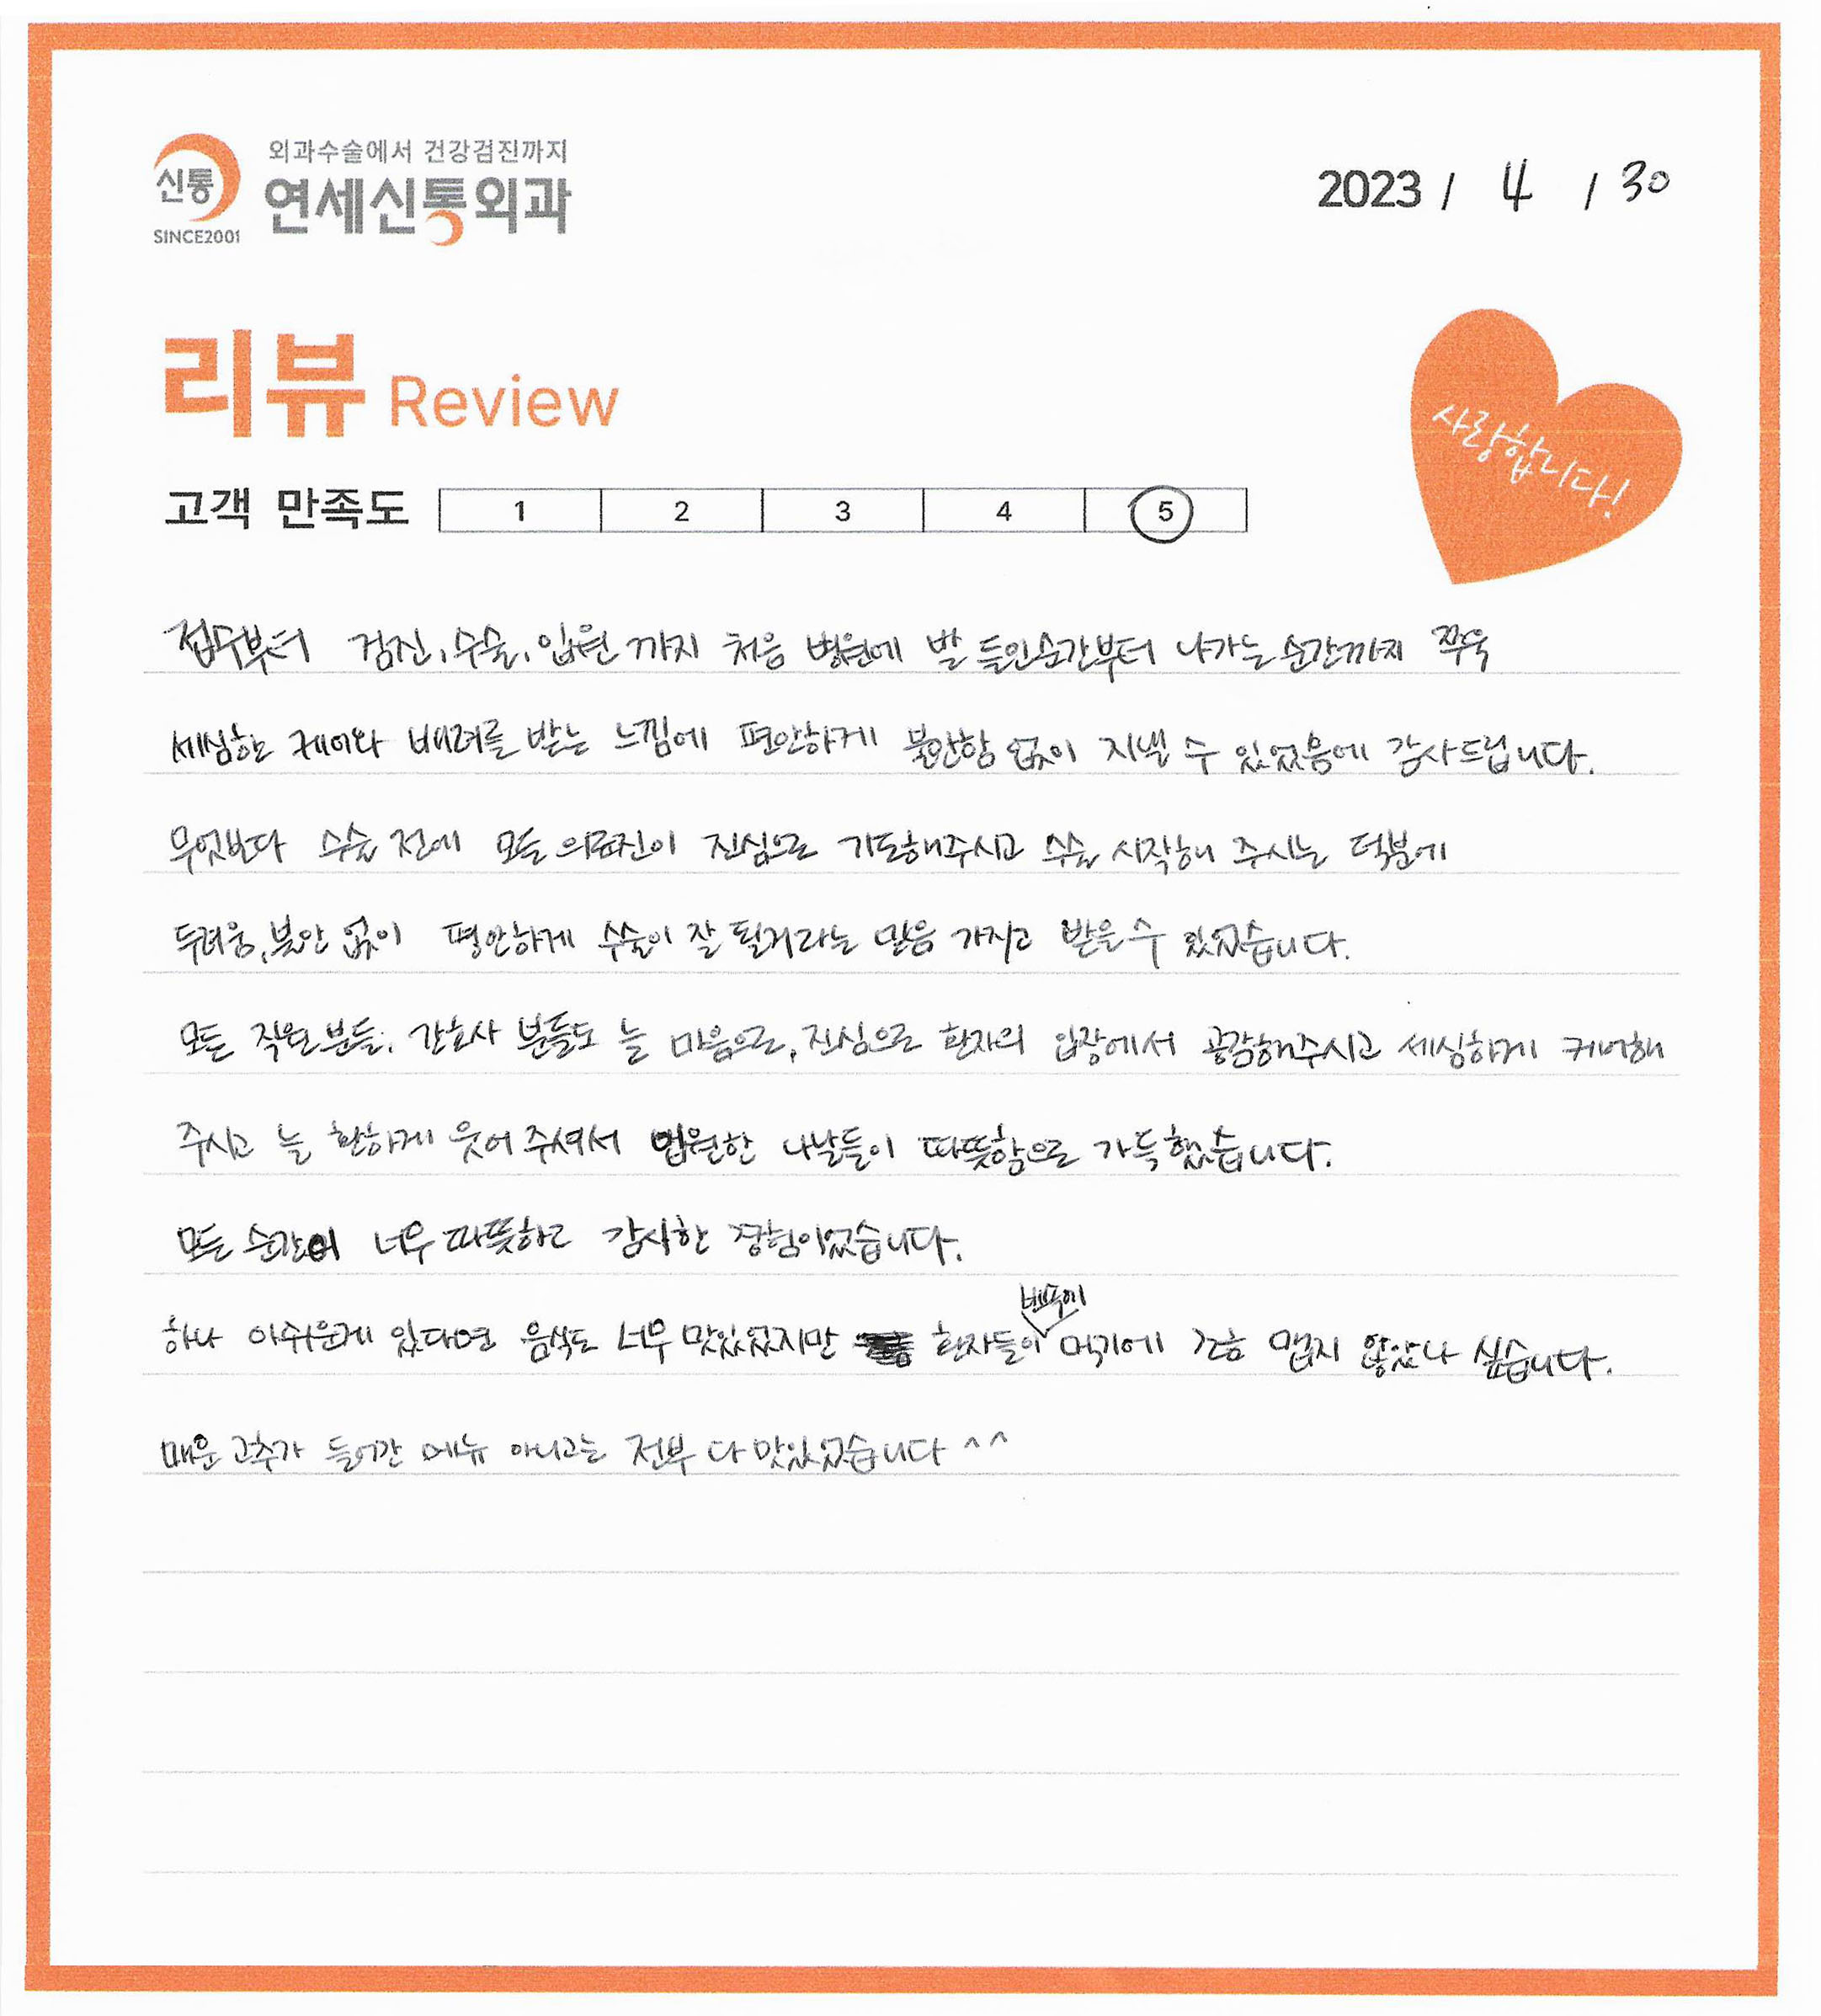 외과수술에서 건강검진까지
신통
연세신통외과
SINCE2001
2023 / 4 / 30
리뷰 Review
사랑합니다!
고객 만족도 1 2 3 4 5
접수부터 검진, 수술, 입원까지 처음 병원에 발 들인순간부터 나가는 순간까지 쭈욱
세심한 케어와 배려를 받는 느낌에 편안하게 불안함 없이 지낼 수 있었음에 감사드립니다.
무엇보다 수술 전에 모든 의료진이 진심으로 기도해주시고 수술 시작해 주시는 덕분에
두려움, 불안 없이 평안하게 수술이 잘 될거라는 믿음 가지고 받을 수 있었습니다.
모든 직원분들, 간호사 분들도 늘 마음으로, 진심으로 환자의 입장에서 공감해주시고 세심하게 케어해
주시고 늘 환하게 웃어주셔서 입원한 나날들이 따뜻함으로 가득했습니다.
모든 순간이 너무 따뜻하고 감사한 경험이었습니다.
하나 아쉬운게 있다면 음식도 너무 맛있었지만 환자들이 먹기에 간혹 맵지 않았나 싶습니다.
매운 고추가 들어간 메뉴 아니고는 전부 다 맛있었습니다 ^^